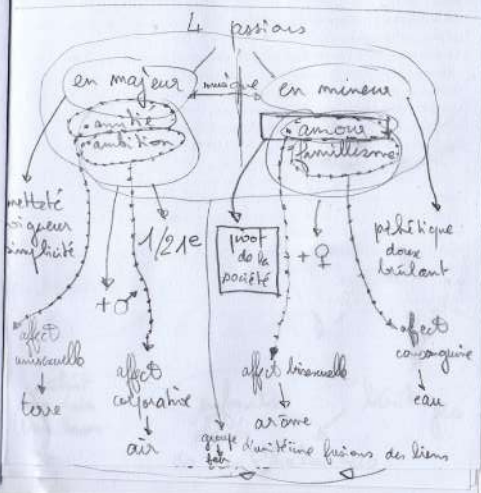 4 passions
en majeur
musique
en mineur
amitié
ambition
amour
famillisme
netteté
vigueur
simplicité
1/21e
pivot
de la
société
pathétique
doux
brûlant
+ ♂
+ ♀
affect
unisexuelle
affect
corporative
affect bisexuelle
affect
consanguine
terre
air
arôme
eau
groupe
d'unitéisme fusions des liens